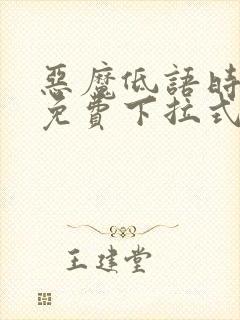 惡魔低語時
免費下拉式
王建堂